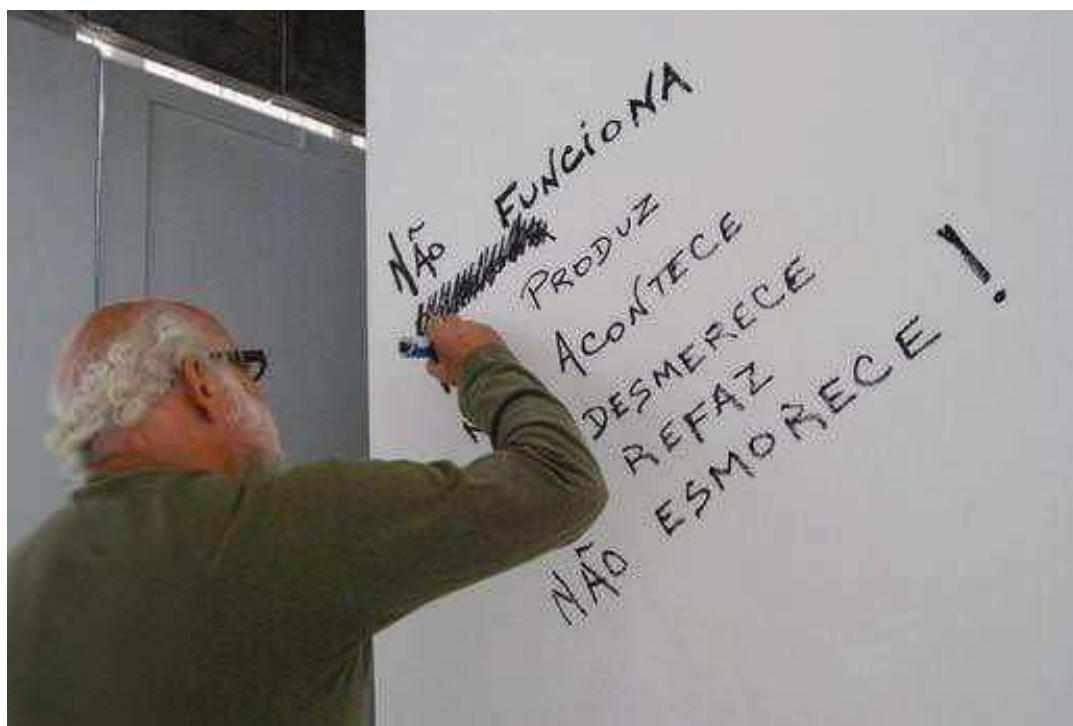 NÃO FUNCIONA
PRODUZ
ACONTECE
DESMERECE
REFAZ
NÃO ESMORECE!